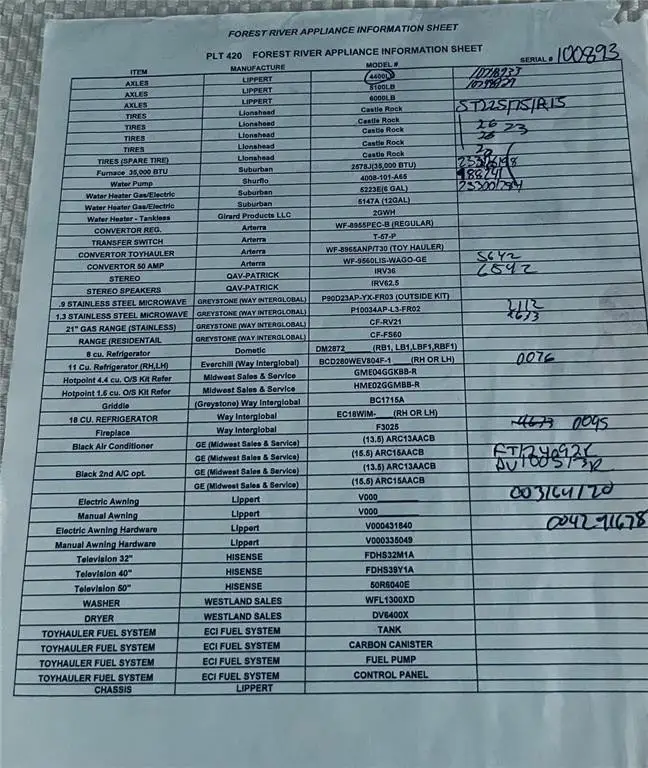 FOREST RIVER APPLIANCE INFORMATION SHEET
PLT 420 FOREST RIVER APPLIANCE INFORMATION SHEET
ITEM MANUFACTURE MODEL # SERIAL # 100893
AXLES LIPPERT 4400LB
AXLES LIPPERT 5100LB
AXLES LIPPERT 6000LB
TIRES Lionshead Castle Rock ST225/75/R15
TIRES Lionshead Castle Rock 26 23
TIRES Lionshead Castle Rock
TIRES Lionshead Castle Rock
TIRES (SPARE TIRE) Lionshead Castle Rock
Furnace 35,000 BTU Suburban 2578J(35,000 BTU)
Water Pump Shurflo 4008-101-A65
Water Heater Gas/Electric Suburban 5223E(6 GAL)
Water Heater Gas/Electric Suburban 5147A (12GAL)
Water Heater - Tankless Girard Products LLC 2GWH
CONVERTOR REG. Arterra WF-8955PEC-B (REGULAR)
TRANSFER SWITCH Arterra T-57-P
CONVERTOR TOYHAULER Arterra WF-8965ANP/T30 (TOY HAULER)
CONVERTOR 50 AMP Arterra WF-9560LIS-WAGO-GE 5642
STEREO QAV-PATRICK IRV36 6542
STEREO SPEAKERS QAV-PATRICK IRV62.5
.9 STAINLESS STEEL MICROWAVE GREYSTONE (WAY INTERGLOBAL) P90D23AP-YX-FR03 (OUTSIDE KIT)
1.3 STAINLESS STEEL MICROWAVE GREYSTONE (WAY INTERGLOBAL) P10034AP-L3-FR02
21" GAS RANGE (STAINLESS) GREYSTONE (WAY INTERGLOBAL) CF-RV21
RANGE (RESIDENTAIL GREYSTONE (WAY INTERGLOBAL) CF-FS60
8 cu. Refrigerator Dometic DM2872____(RB1, LB1,LBF1,RBF1)
11 Cu. Refrigerator (RH,LH) Everchill (Way Interglobal) BCD280WEV804F-1 (RH OR LH) 0076
Hotpoint 4.4 cu. O/S Kit Refer Midwest Sales & Service GME04GGKBB-R
Hotpoint 1.6 cu. O/S Kit Refer Midwest Sales & Service HME02GGMBB-R
Griddle (Greystone) Way Interglobal BC1715A
18 CU. REFRIGERATOR Way Interglobal EC18WIM-___(RH OR LH)
Fireplace Way Interglobal F3025 4673 0095
Black Air Conditioner GE (Midwest Sales & Service) (13.5) ARC13AACB
GE (Midwest Sales & Service) (15.5) ARC15AACB
Black 2nd A/C opt. GE (Midwest Sales & Service) (13.5) ARC13AACB
GE (Midwest Sales & Service) (15.5) ARC15AACB
Electric Awning Lippert V000______ 003164120
Manual Awning Lippert V000______
Electric Awning Hardware Lippert V000431640
Manual Awning Hardware Lippert V000335049
Television 32" HISENSE FDHS32M1A
Television 40" HISENSE FDHS39Y1A
Television 50" HISENSE 50R6040E
WASHER WESTLAND SALES WFL1300XD
DRYER WESTLAND SALES DV6400X
TOYHAULER FUEL SYSTEM ECI FUEL SYSTEM TANK
TOYHAULER FUEL SYSTEM ECI FUEL SYSTEM CARBON CANISTER
TOYHAULER FUEL SYSTEM ECI FUEL SYSTEM FUEL PUMP
TOYHAULER FUEL SYSTEM ECI FUEL SYSTEM CONTROL PANEL
CHASSIS LIPPERT